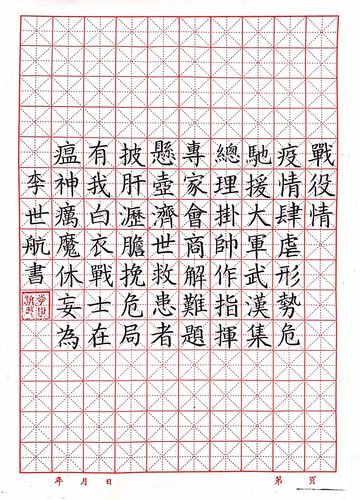 戰役情
疫情肆虐形勢危
馳援大軍武漢集
總理掛帥作指揮
專家會商解難題
懸壺濟世救患者
披肝瀝膽挽危局
有我白衣戰士在
瘟神癘魔休妄為
李世航書
年 月 日
第 頁